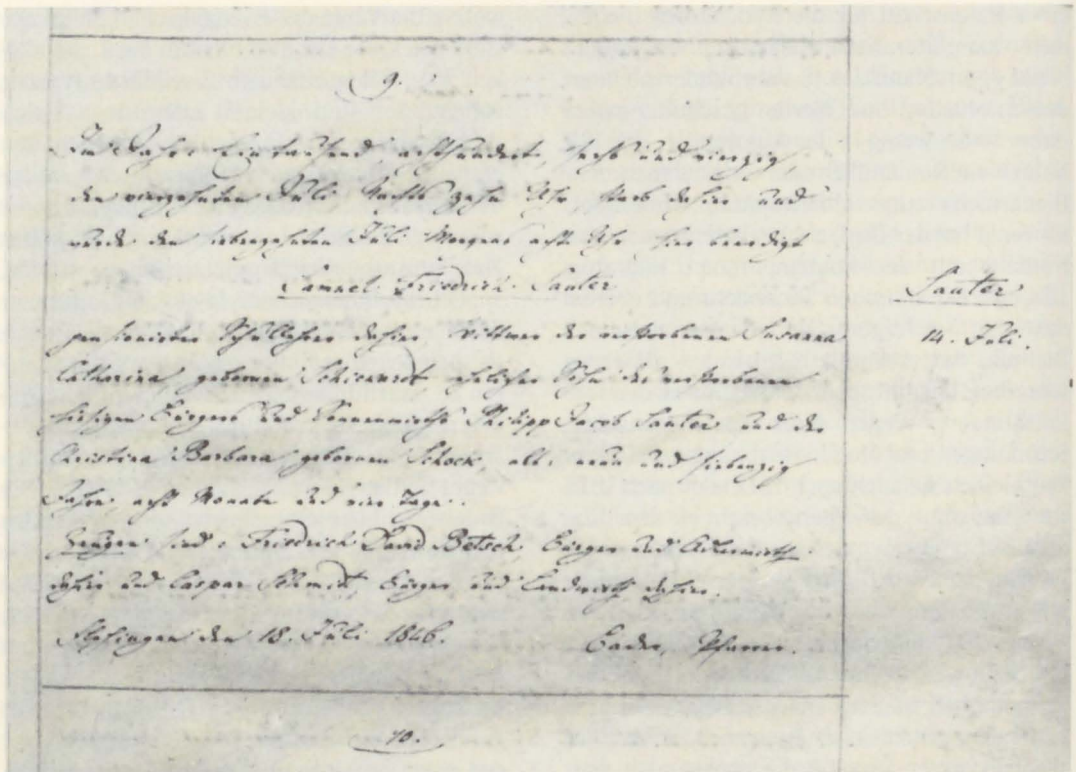 9.
Im Jahr Eintausend achthundert sechs und vierzig
den vierzehnten Juli Nachts zehn Uhr starb dahier und
wurde den siebenzehnten Juli Morgens acht Uhr hier beerdigt
Samuel Friedrich Sauter
Sauter
pensionirter Schullehrer dahier, Wittwer der verstorbenen Susanna
14. Juli.
Catharina, gebornen ehelicher Sohn des verstorbenen
hiesigen Bürgers und Sonnenwirths Philipp Jacob Sauter und der
Christina Barbara gebornen Schock, alt: neun und siebenzig
Jahre acht Monate und vier Tage.
Zeugen sind: Friedrich David Betsch, Bürger und
dahier und Caspar Schmidt, Bürger und Landwirth dahier.
Flehingen den 18. Juli 1846.
Bader, Pfarrer.
10.